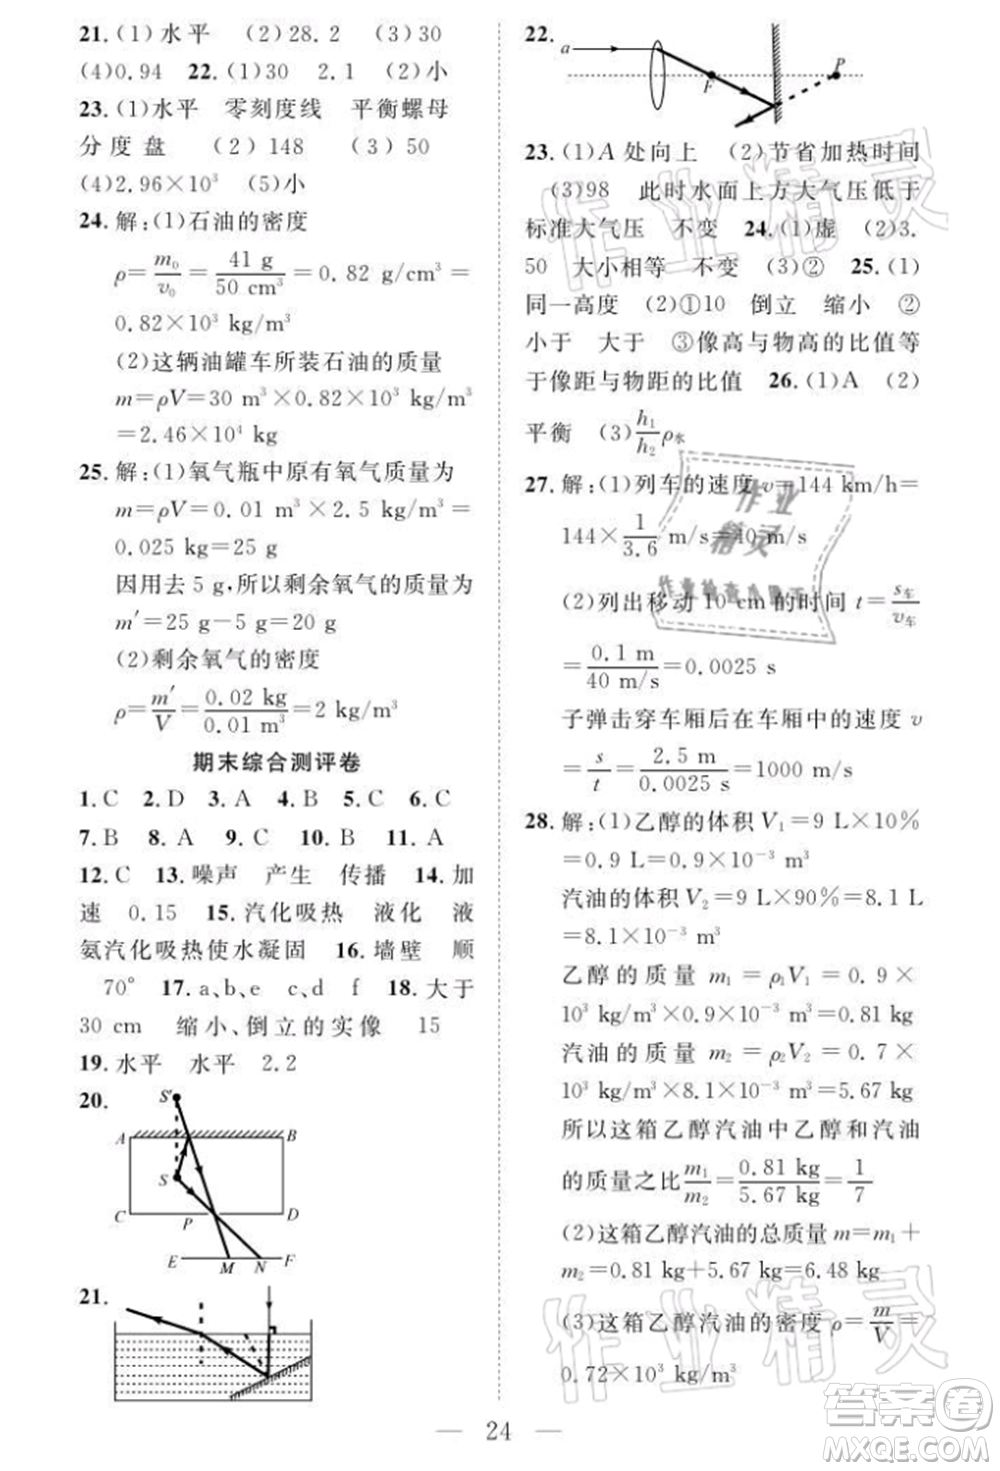 21. (1)水平 (2)28.2 (3)30
(4)0.94 22. (1)30 2.1 (2)小
23. (1)水平 零刻度线 平衡螺母
分度盘 (2)148 (3)50
(4)2.96×10³ (5)小
24. 解:(1)石油的密度
ρ=m₀/v₀=41 g/50 cm³=0.82 g/cm³=
0.82×10³ kg/m³
(2)这辆油罐车所装石油的质量
m=ρV=30 m³×0.82×10³ kg/m³
=2.46×10⁴ kg
25. 解:(1)氧气瓶中原有氧气质量为
m=ρV=0.01 m³×2.5 kg/m³=
0.025 kg=25 g
因用去 5 g,所以剩余氧气的质量为
m′=25 g-5 g=20 g
(2)剩余氧气的密度
ρ=m′/V=0.02 kg/0.01 m³=2 kg/m³
期末综合测评卷
1. C 2. D 3. A 4. B 5. C 6. C
7. B 8. A 9. C 10. B 11. A
12. C 13. 噪声 产生 传播 14. 加
速 0.15 15. 汽化吸热 液化 液
氨汽化吸热使水凝固 16. 墙壁 顺
70° 17. a、b、e c、d f 18. 大于
30 cm 缩小、倒立的实像 15
19. 水平 水平 2.2
20.
S′
A B
S
C P D
E M N F
21.
22.
a F P
23. (1)A 处向上 (2)节省加热时间
(3)98 此时水面上方大气压低于
标准大气压 不变 24. (1)虚 (2)3.
50 大小相等 不变 (3)② 25. (1)
同一高度 (2)①10 倒立 缩小 ②
小于 大于 ③像高与物高的比值等
于像距与物距的比值 26. (1)A (2)
平衡 (3)h₁/h₂ρ水
27. 解:(1)列车的速度 v=144 km/h=
144×1/3.6 m/s=40 m/s
(2)列出移动 10 cm 的时间 t=s车/v车
=0.1 m/40 m/s=0.0025 s
子弹击穿车厢后在车厢中的速度 v
=s/t=2.5 m/0.0025 s=1000 m/s
28. 解:(1)乙醇的体积 V₁=9 L×10%
=0.9 L=0.9×10⁻³ m³
汽油的体积 V₂=9 L×90%=8.1 L
=8.1×10⁻³ m³
乙醇的质量 m₁=ρ₁V₁=0.9×
10³ kg/m³×0.9×10⁻³ m³=0.81 kg
汽油的质量 m₂=ρ₂V₂=0.7×
10³ kg/m³×8.1×10⁻³ m³=5.67 kg
所以这箱乙醇汽油中乙醇和汽油
的质量之比m₁/m₂=0.81 kg/5.67 kg=1/7
(2)这箱乙醇汽油的总质量 m=m₁+
m₂=0.81 kg+5.67 kg=6.48 kg
(3)这箱乙醇汽油的密度 ρ=m/V=
0.72×10³ kg/m³
— 24 —
作业精灵
作业
精灵
作业精灵
答案圈
MXQE.COM